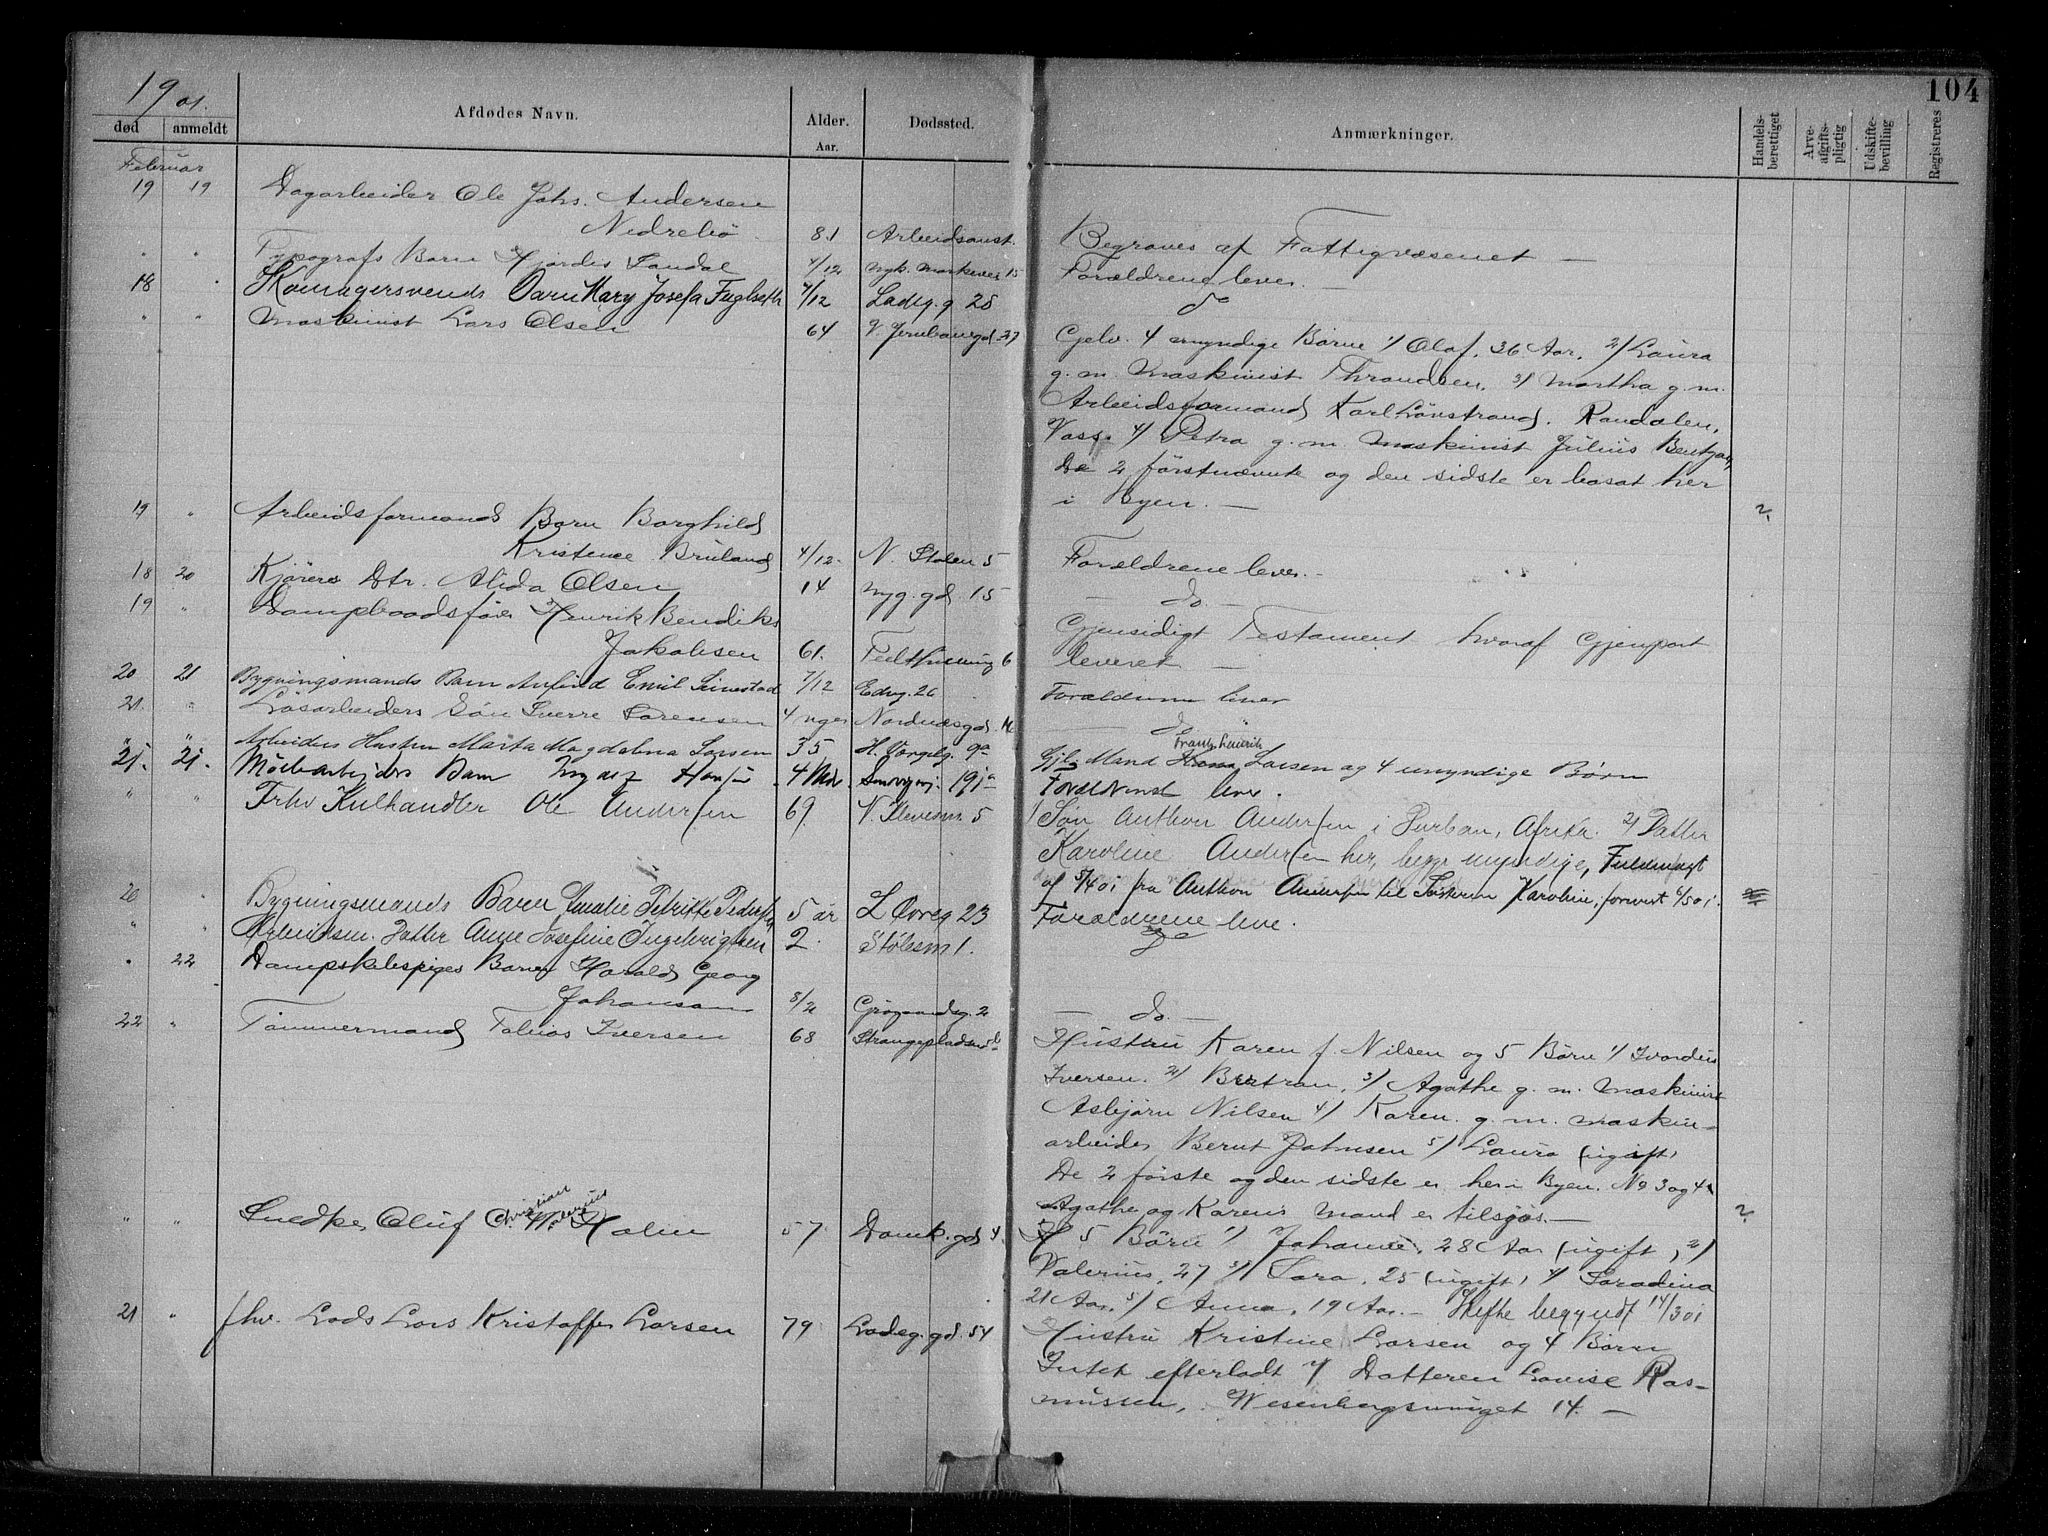 104
1901.
død anmeldt Afdødes Navn. Alder. Aar. Dødssted. Anmærkninger. Handels-berettiget Arve-afgifts-pligtig Udskifte-bevilling Registreres
Februar
19 19 Dagarbeider Ole Johs. Andersen
Nedrebö 81 Arbeidsanst. Begraves af Fattigvæsenet —
" " Typografs Barn Hjördis Sandal 4/12 Nyk. Markevei 15 Forældrene lever. —
18 " Barn Mary Josefa Fuglseth 7/12 Ladeg. g 28 do
" " Maskinist Lars Olsen 64 V. Jernbanegd. 27 Gjelv. 4 myndige Børn 1/ Olaf, 36 Aar, 2/ Laura
g. m. Maskinist Thrandsen, 3/ Martha g. m.
Arbeidsformand Karl Lövstrand, Raudalen,
Voss. 4/ Petra g. m. Maskinist Julius
De 2 förstnævnte og den sidste er bosat her
i Byen. —
19 " Arbeidsformands Barn Borghild
Kristense Bruland 4/12. N. Stolen 5 Forældrene lever. —
18 20 Kjörers Dtr. Alida Olsen 14 Nyg. gd 15 — do. —
19 " Dampbaadsfører Henrik Bendiks
Jakobsen 61. 6 Gjensidigt Testament hvoraf Gjenpart
leveret —
20 21 Bygningsmands Barn Emil 7/12 26 Forældrene lever
21. " Løsarbeiders Søn Sverre Sørensen 4 uger Nordnæsgd. — do —
" " Arbeiders Hustru Marta Magdalena Larsen 35 H. 9a Gjl. Mand Frantz Henrik Larsen og 4 umyndige Børn
21. 21. Barn 4 Mdr. 19 Forældrene lever.
" " Frhv Kulhandler Ole Andersen 69. N. 5 1/ Søn Anthon Andersen i Durban, Afrika. 2/ Datter
Karoline Andersen her, begge myndige, Fuldmagt
af 5/4 01 fra Anthon Andersen til Søsteren Karoline, forevist 6/5 01.
20 " Bygningsmands Barn Amalie Petrikke Pedersen 5 år L Øvreg 23 Forældrene leve.
" " Arbeidsm. Datter Anne Josefine Ingebrigtsen 2. Stølesm 1. do
" 22 Barn Harald Georg
Johansen 8/12 2 — do. —
22 " Tømmermand Tobias Iversen 68 Hustru Karen f. Nilsen og 5 Børn 1/
Iversen. 2/ Bertran, 3/ Agathe g. m. Maskinist
Asbjørn Nilsen 4/ Karen g. m. Maskin-
arbeider Bernt Johnsen 5/ Laura (ugift)
De 2 første og den sidste er her i Byen. No 3 og 4
Agathe og Karens Mand er tilsjøs. —
" " Snedker Oluf Christian Holm 57 Damk. gd 4. 5 Børn 1/ Johanne, 28 Aar (ugift), 2/
Valerius, 27 3/ Sara, 25 (ugift) 4/ Saradina
21 Aar, 5/ Anna, 19 Aar. — Skifte begyndt 14/3 01
21 " fhv. Lods Lars Kristoffer Larsen 79 Ladeg. gd. 54 Hustru Kristine Larsen og 4 Børn
Intet efterladt 1/ Datteren Lovise Ras-
mussen, Wesenbergsmuget 14. —